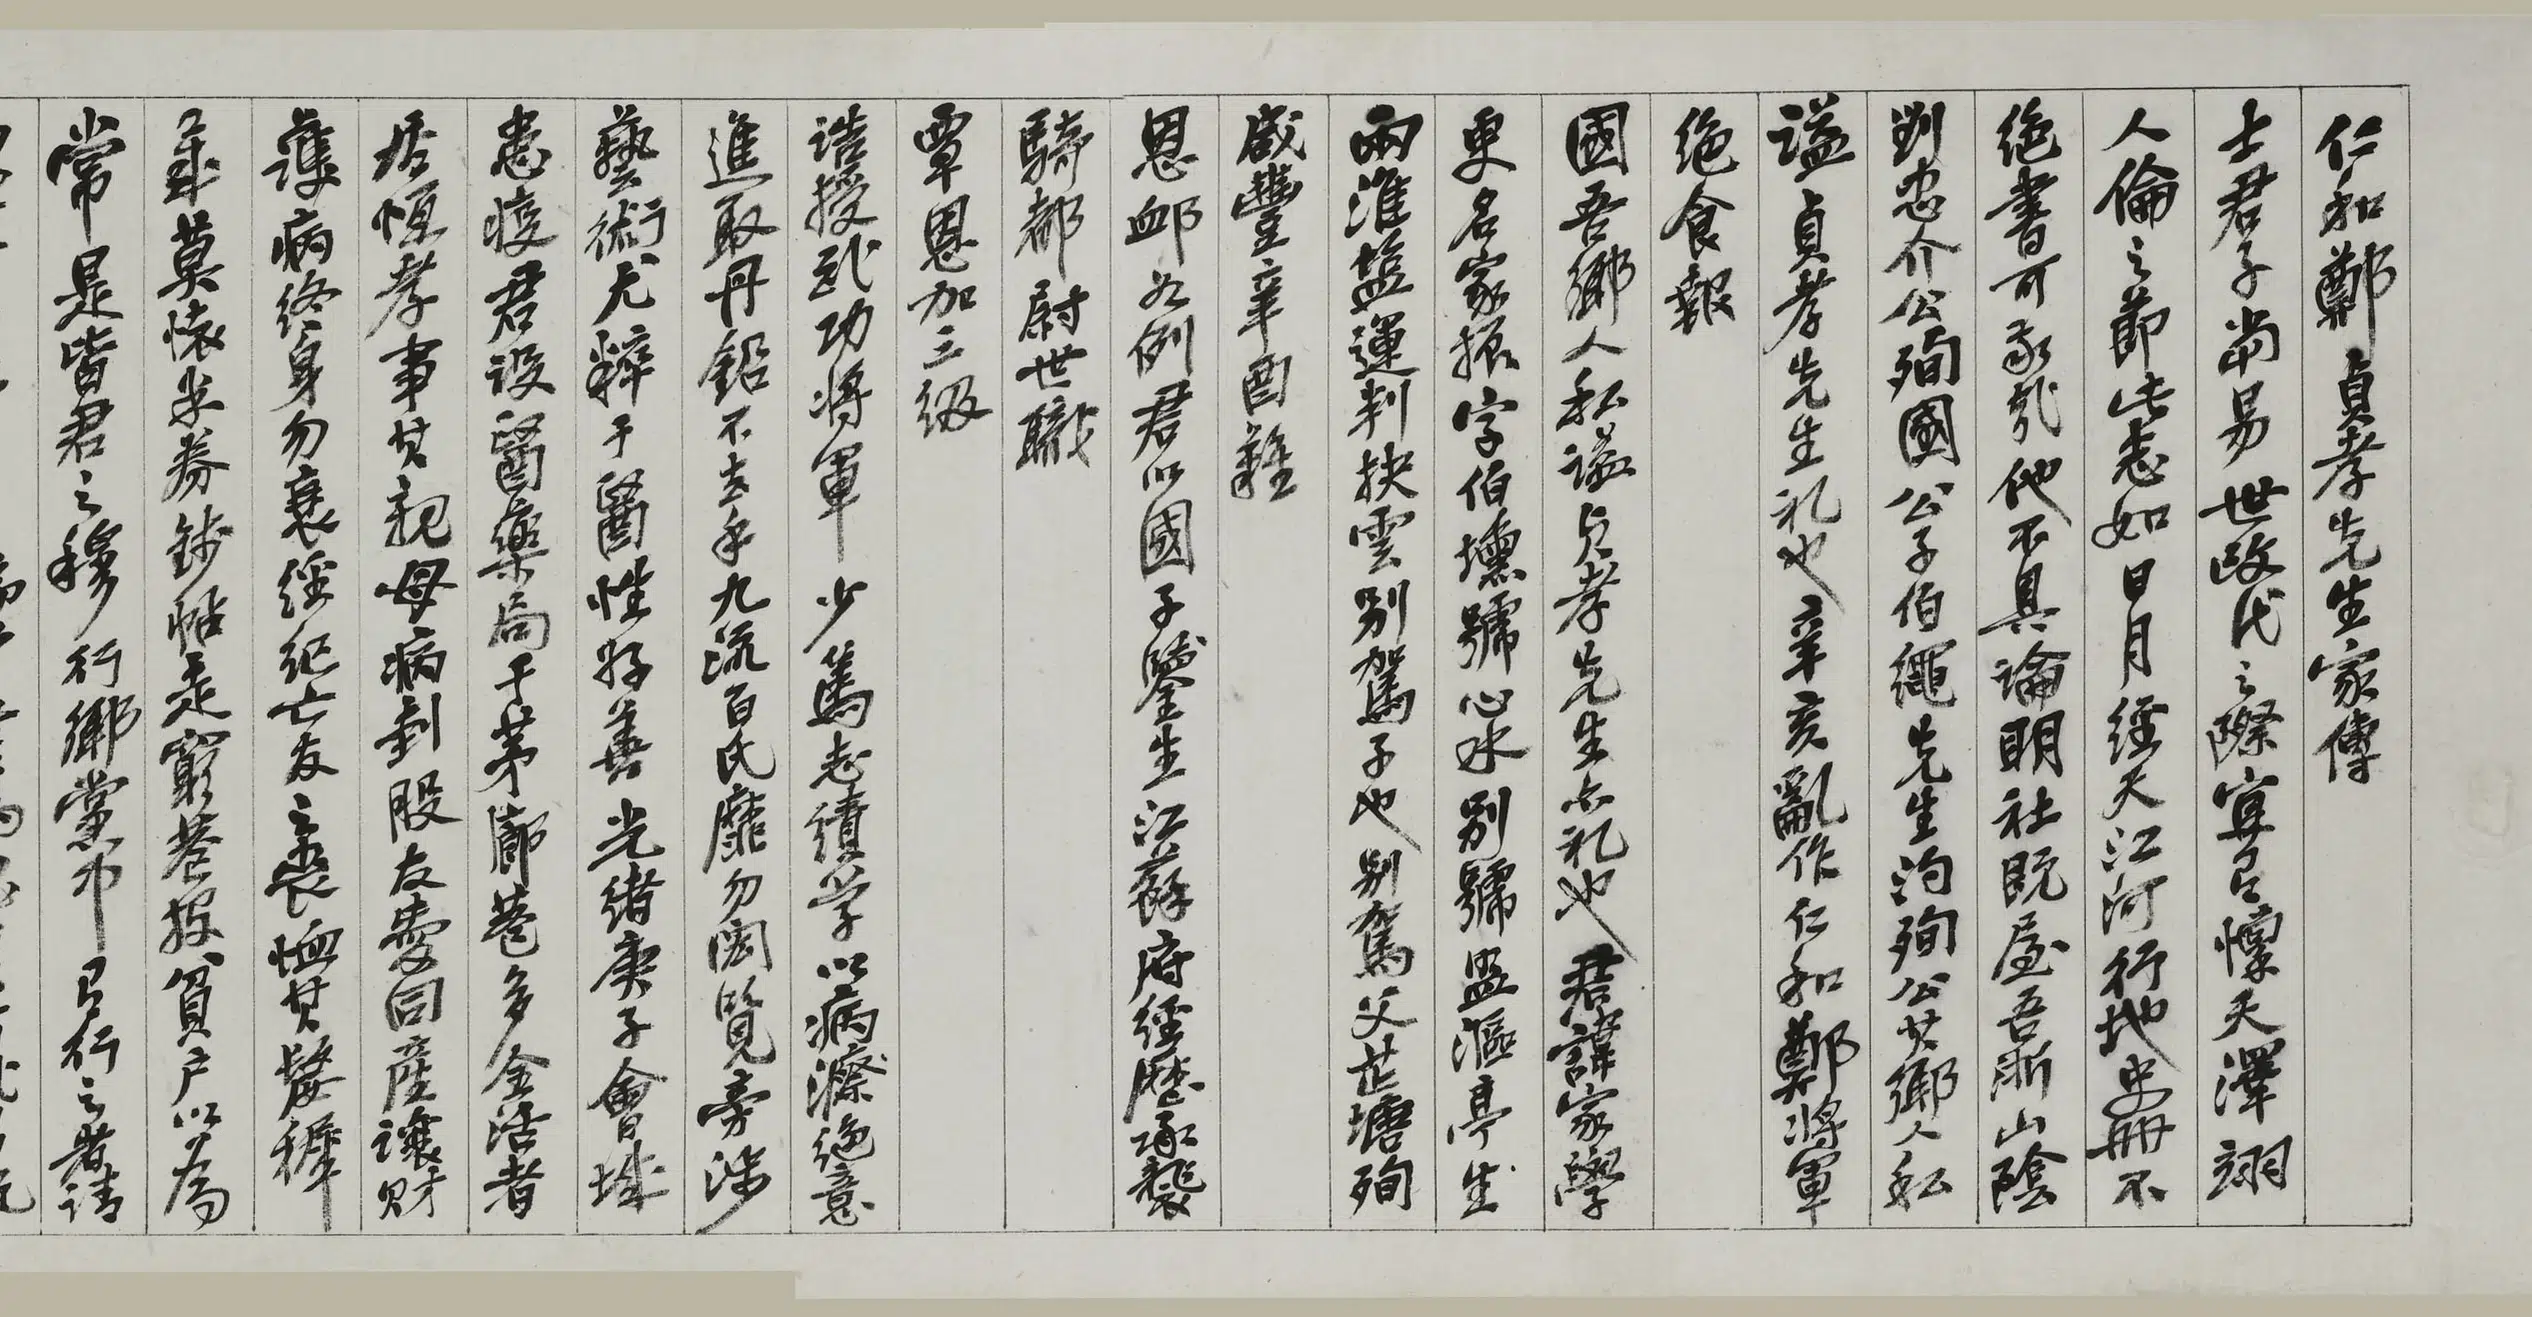 仁和鄭貞孝先生家傳
士君子當易世改代之際宜有懍天澤翊
人倫之節此志如日月經天江河行地史冊不
絕書可承我他不具論明社既屋吾浙山陰
劉忠介公殉國公子伯繩先生沟殉公其鄉人私
謚貞孝先生礼也辛亥亂作仁和鄭將軍
絕食報
國吾鄉人私謚貞孝先生亦礼也君諱家學
更名家振字伯壎號心水別號盥漚亭生
兩淮鹽運判扶雲別駕子也別駕父芷塘殉
咸豐辛酉難
恩卹如例君以國子鑒生江蘇府經歷承襲
騎都尉世職
覃恩加三級
誥授武功將軍少篤志績学以病瘵絕意
進取丹鉛不去手九流百氏靡勿閎覽旁涉
藝術尤粹于醫性好善光緒庚子會城
患疫君設醫藥局于茅廊巷多全活者
居恆孝事其親母病刲股友愛同產讓財
護病終身勿衰經紀亡友之喪恤其嫠穉
年莫懷米券錢帖走窮巷投貧戶以為
常是皆君之穆行鄉黨中有行之者請